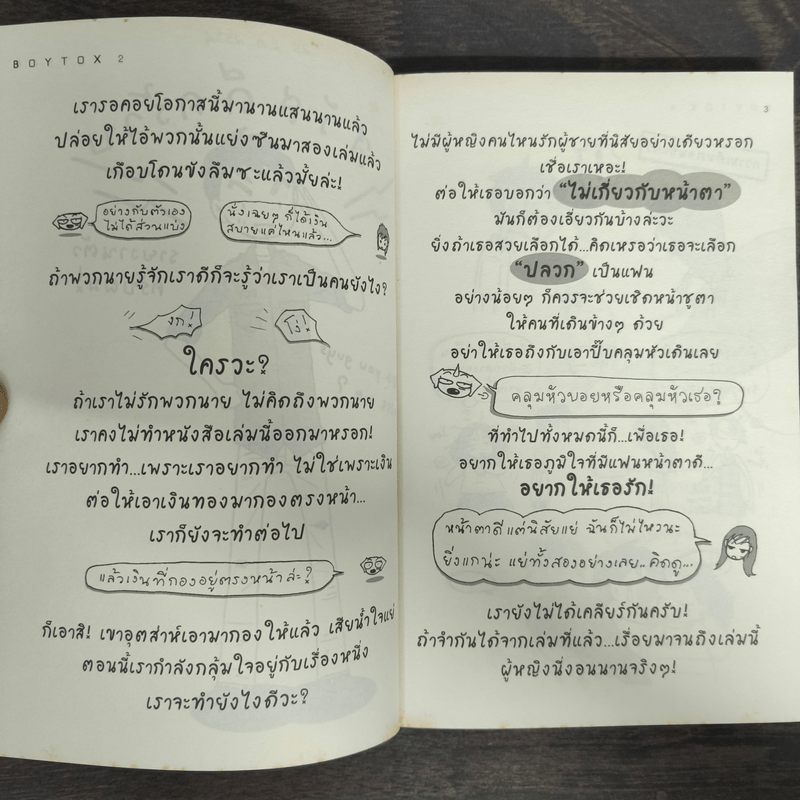 BOYTOX 2
เรารอคอยโอกาสนี้มานานแสนนานแล้ว
ปล่อยให้ไอ้พวกนั้นแย่งซีนมาสองเล่มแล้ว
เกือบโดนขังลืมซะแล้วมั้ยล่ะ!
อย่างกับตัวเอง
ไม่ได้ส่วนแบ่ง
นั่งเฉยๆ ก็ได้เงิน
สบายแค่ไหนแล้ว...
ถ้าพวกนายรู้จักเราดีก็จะรู้ว่าเราเป็นคนยังไง?
งก!
โง่!
ใครวะ?
ถ้าเราไม่รักพวกนาย ไม่คิดถึงพวกนาย
เราคงไม่ทำหนังสือเล่มนี้ออกมาหรอก!
เราอยากทำ...เพราะเราอยากทำ ไม่ใช่เพราะเงิน
ต่อให้เอาเงินทองมากองตรงหน้า...
เราก็ยังจะทำต่อไป
แล้วเงินที่กองอยู่ตรงหน้าล่ะ?
ก็เอาสิ! เขาอุตส่าห์เอามากองให้แล้ว เสียน้ำใจแย่
ตอนนี้เรากำลังกลุ้มใจอยู่กับเรื่องหนึ่ง
เราจะทำยังไงดีวะ?
3
ไม่มีผู้หญิงคนไหนรักผู้ชายที่นิสัยอย่างเดียวหรอก
เชื่อเราเหอะ!
ต่อให้เธอบอกว่า “ไม่เกี่ยวกับหน้าตา”
มันก็ต้องเอี่ยวกันบ้างล่ะวะ
ยิ่งถ้าเธอสวยเลือกได้...คิดเหรอว่าเธอจะเลือก
“ปลวก” เป็นแฟน
อย่างน้อยๆ ก็ควรจะช่วยเชิดหน้าชูตา
ให้คนที่เดินข้างๆ ด้วย
อย่าให้เธอถึงกับเอาปี๊บคลุมหัวเดินเลย
คลุมหัวบอยหรือคลุมหัวเธอ?
ที่ทำไปทั้งหมดนี้ก็...เพื่อเธอ!
อยากให้เธอภูมิใจที่มีแฟนหน้าตาดี...
อยากให้เธอรัก!
หน้าตาดีแต่นิสัยแย่ ฉันก็ไม่ไหวนะ
ยิ่งแกน่ะ แย่ทั้งสองอย่างเลย..คิดดู...
เรายังไม่ได้เคลียร์กันครับ!
ถ้าจำกันได้จากเล่มที่แล้ว...เรื่อยมาจนถึงเล่มนี้
ผู้หญิงนี่งอนนานจริงๆ!